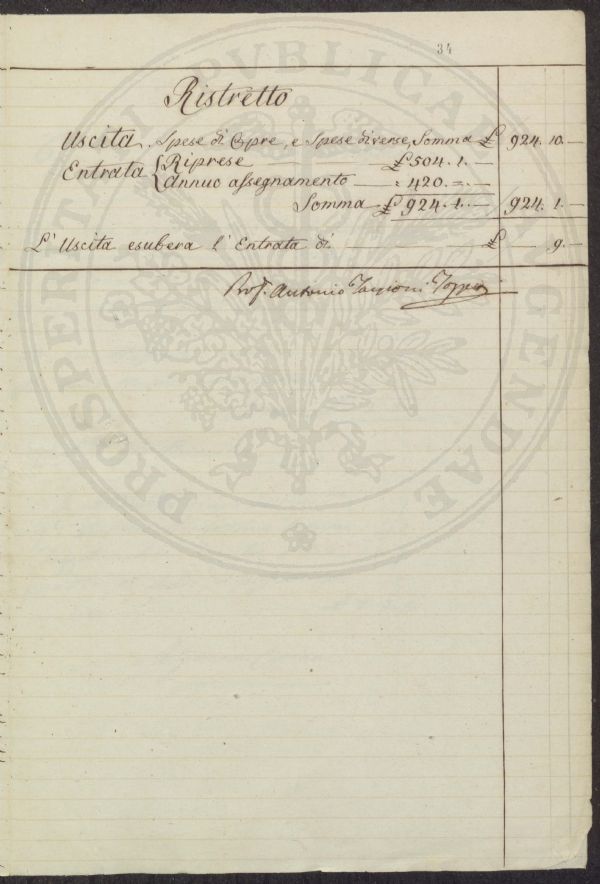 34
Ristretto
Uscita, Spese di Opre, e Spese diverse, Somma £ 924. 10. —
Entrata { Riprese — £ 504. 1. —
{ Annuo assegnamento — : 420. = . —
Somma £ 924. 1. — 924. 1. —
L'Uscita esubera l'Entrata di — £ — . 9. —
Prof. Antonio Targioni Tozzetti
PROSPERITATI PUBLICAE AUGENDAE